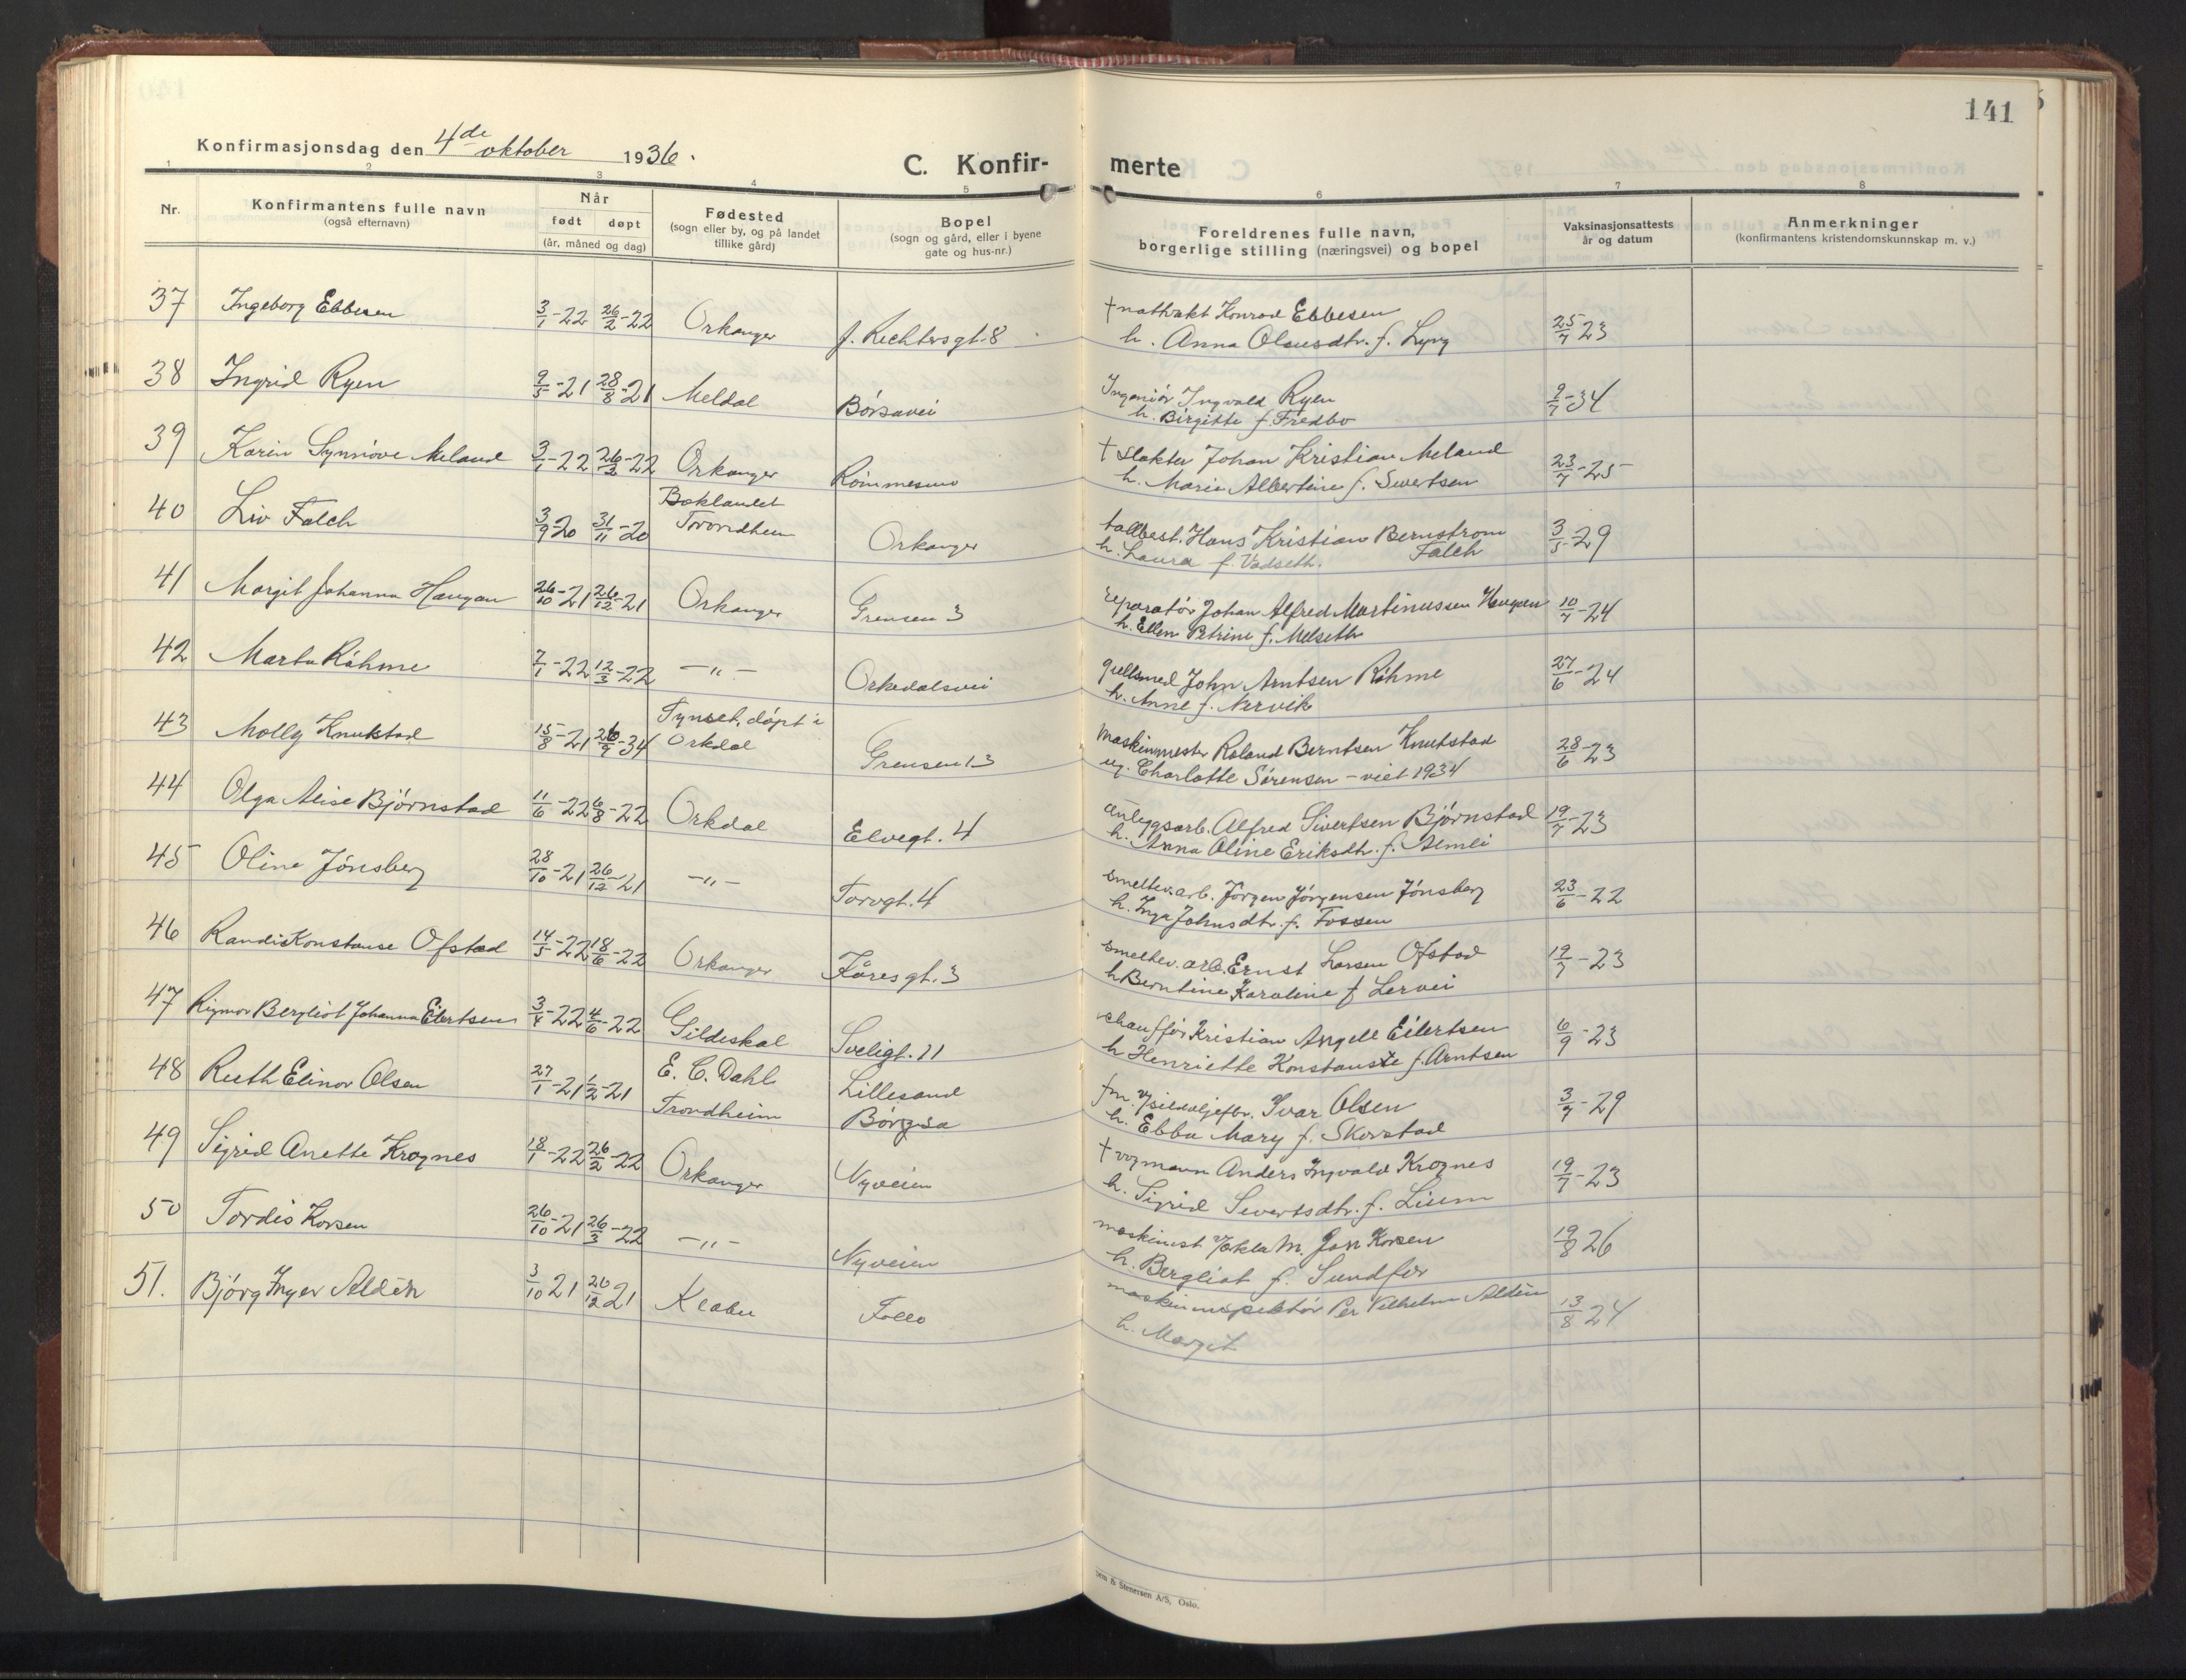 141
Konfirmasjonsdag den 4de oktober 1936.
C. Konfir- merte
1 2 3 4 5 6 7 8
Nr.
Konfirmantens fulle navn
(også efternavn)
Når
født døpt
(år, måned og dag)
Fødested
(sogn eller by, og på landet
tillike gård)
Bopel
(sogn og gård, eller i byene
gate og hus-nr.)
Foreldrenes fulle navn,
borgerlige stilling (næringsvei) og bopel
Vaksinasjonsattests
år og datum
Anmerkninger
(konfirmantens kristendomskunnskap m. v.)
37 Ingeborg Ebbesen 3/1-22 26/2-22 Orkanger J. Richtersgt. 8 † Konrad Ebbesen 25/7 23
h. Anna Olausdtr. f. Lyng
38 Ingrid Ryen 9/5-21 28/8-21 Meldal Börsavei Ingeniör Ingvald Ryen 9/7-34
h. Birgitte f. Fredbo
39 Karin Synnöve Meland 3/1-22 26/2-22 Orkanger Römmesmo † Slakter Johan Kristian Meland 23/7-25
h. Marie Albertine f. Sivertsen
40 Liv Falch 3/9 20 31/11-20 Baklandet
Trondheim Orkanger tallbest. Hans Kristian Bernstrom 3/5-29
h. Laura f. Vadseth. Falch
41 Margit Johanna Haugan 26/10-21 26/12-21 Orkanger Grensen 3 reparatör Johan Alfred Martinussen Haugan 10/7-24
h. Ellen Petrine f. Melseth
42 Marta Röhme 7/1-22 12/3-22 -"- Orkedalsvei gullsmed John Arntsen Röhme 27/6-24
h. Anne f. Nervik
43 Molly Knutstad 15/8-21 26/9-34 Tynset, döpt i
Orkdal Grensen 13 Maskinmester Roland Berntsen Knutstad 28/6-23
ug. Charlotte Sörensen - viet 1934
44 Olga Alise Bjørnstad 11/6-22 6/8-22 Orkdal Elvegt. 4 anleggsarb. Alfred Sivertsen Bjørnstad 19/7-23
h. Anna Oline Eriksdtr. f. Almli
45 Oline Jönsberg 28/10-21 26/12-21 -"- Torvgt. 4 smeltev. arb. Jörgen Jörgensen Jönsberg 23/6-22
h. Inga Johnsdtr. f. Fossen
46 Randi Konstanse Ofstad 14/5-22 18/6-22 Orkanger Kåresgt. 3 smeltev. arb. Ernst Larsen Ofstad 19/7-23
h Berntine Karoline f Lervei
47 Rigmor Bergliot Johanna Eilertsen 3/4-22 4/6-22 Gildeskal Sveligt. 11 chaufför Kristian Angell Eilertsen 6/9-23
h Henriette Konstanse f. Arntsen
48 Ruth Elinor Olsen 27/1-21 1/2-21 E. C. Dahl
Trondheim Lillesand
Börsa † Ivar Olsen 3/7-29
h. Ebba Mary f. Skorstad
49 Sigrid Anette Krognes 18/1-22 26/2-22 Orkanger Nyveien † vognmann Anders Ingvald Krognes 19/7-23
h. Sigrid Sivertsdtr. f. Lium
50 Tordis Korsen 26/10-21 26/3-22 -"- Nyveien maskinist v/Orkla M. Jon Korsen 19/8 26
h. Bergliot f. Sundfær
51. Björg Inger Aldén 3/10 21 26/12 21 Klæbu Follo maskininspektör Per Vilhelm Aldén 13/8 24
h. Margit
Stenersen A/S, Oslo.